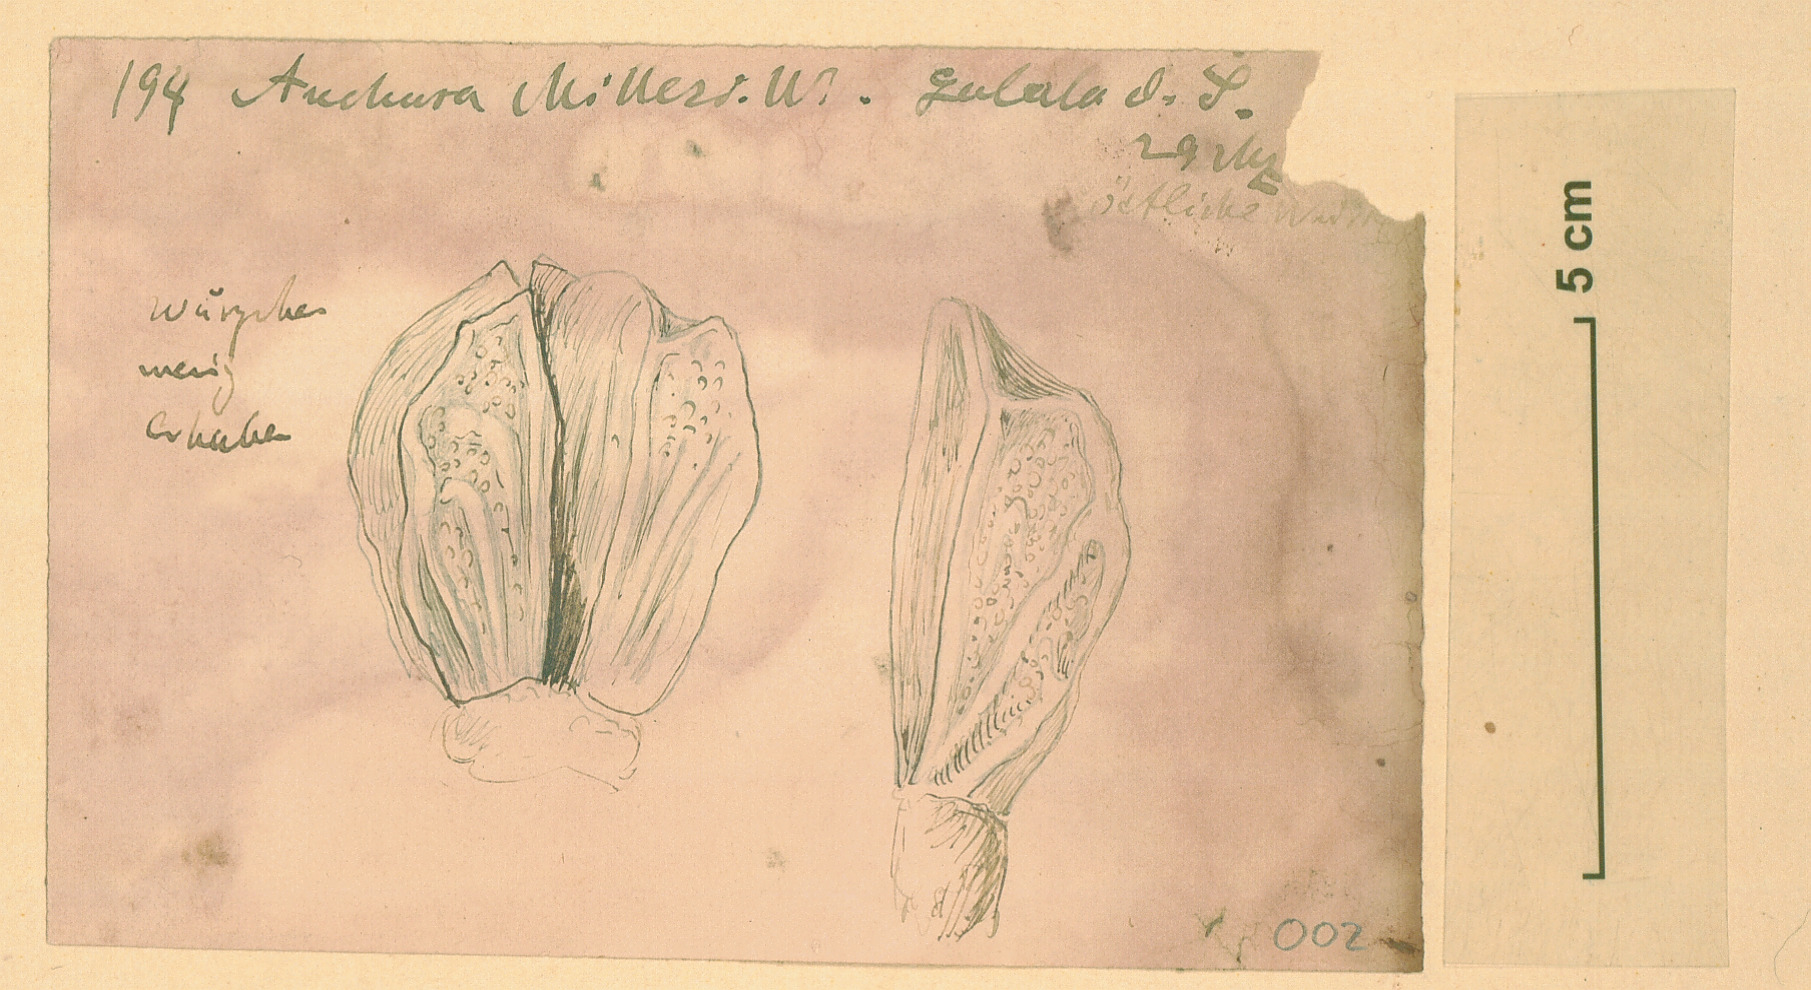 194 Anchusa Milleri. W. . Galala d. S.
29 Mz
östliche
Würzchen
wenig
erhaben
002
5 cm